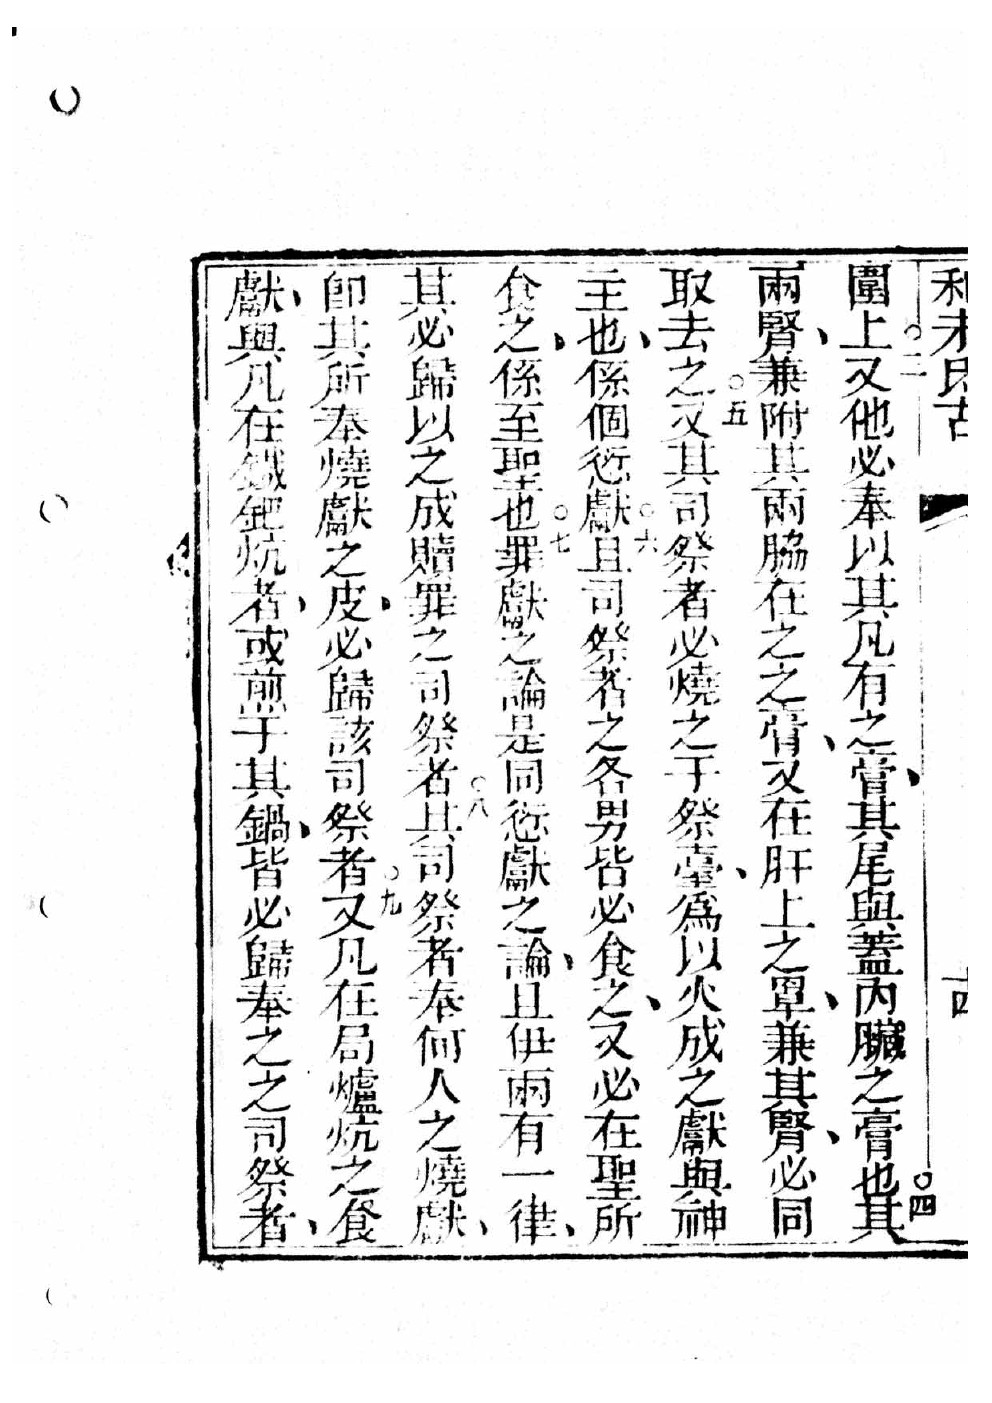 利未氏古
圍上○三又他必奉以其凡有之膏、其尾與蓋內臟之膏也○四其
兩腎、兼附其兩脇在之之膏、又在肝上之罩、兼其腎、必同
取去之○五又其司祭者必燒之于祭臺、爲以火成之獻與神
主也、係個愆獻○六且司祭者之各男皆必食之、又必在聖所
食之、係至聖也○七罪獻之論是同愆獻之論、且伊兩有一律、
其必歸以之成贖罪之司祭者○八其司祭者奉何人之燒獻、
即其所奉燒獻之皮、必歸該司祭者○九又凡在局爐炕之食
獻、與凡在鐵鈀炕者、或煎于其鍋、皆必歸奉之之司祭者、